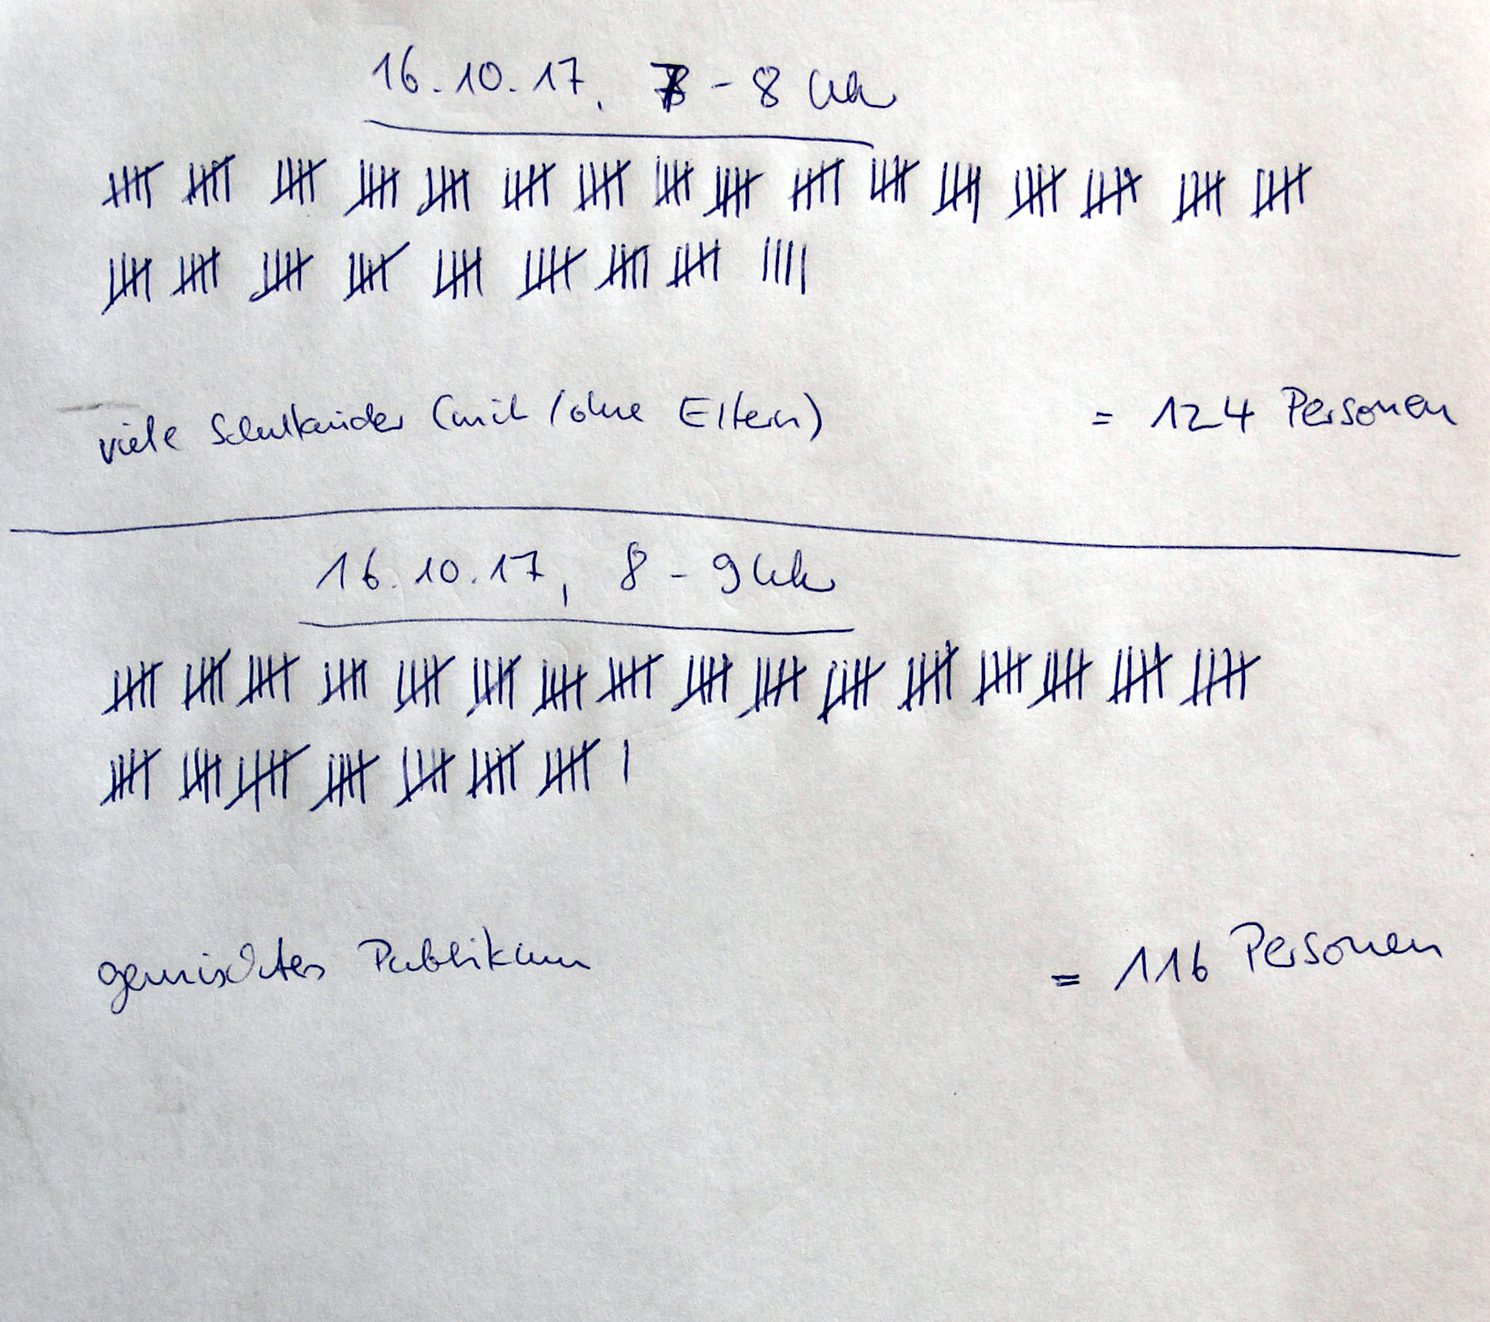 16.10.17, 7 - 8 Uhr
viele Schulkinder (mit/ohne Eltern) = 124 Personen
16.10.17, 8 - 9 Uhr
gemischtes Publikum = 116 Personen